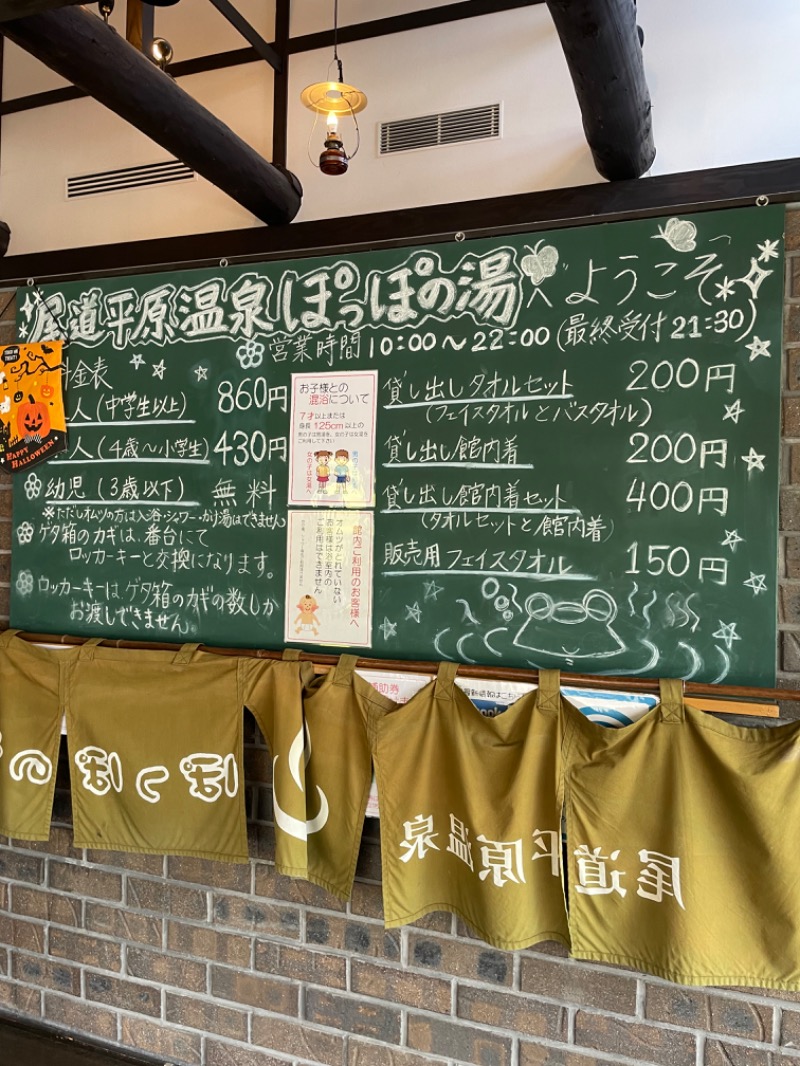 尾道平原温泉ぽっぽの湯へようこそ
営業時間 10:00～22:00 (最終受付 21:30)
金表
人 (中学生以上) 860円
人 (4歳～小学生) 430円
幼児 (3歳以下) 無料
※ただしオムツの方は入浴・シャワー・かけ湯はできません
ゲタ箱のカギは、番台にて
ロッカーキーと交換になります。
ロッカーキーは、ゲタ箱のカギの数しか
お渡しできません
TRICK OR TREAT!
HAPPY HALLOWEEN
お子様との
混浴について
7才以上または
身長125cm以上の
男の子は男湯を、女の子は女湯を
ご利用して下さい
女の子は女湯へ
館内ご利用のお客様へ
オムツがとれていない
お客様は浴室内の
ご利用はできません
貸し出しタオルセット 200円
(フェイスタオルとバスタオル)
貸し出し館内着 200円
貸し出し館内着セット 400円
(タオルセットと館内着)
販売用フェイスタオル 150円
補助券
最新情報はこち
尾道平原温泉
ぽっぽの